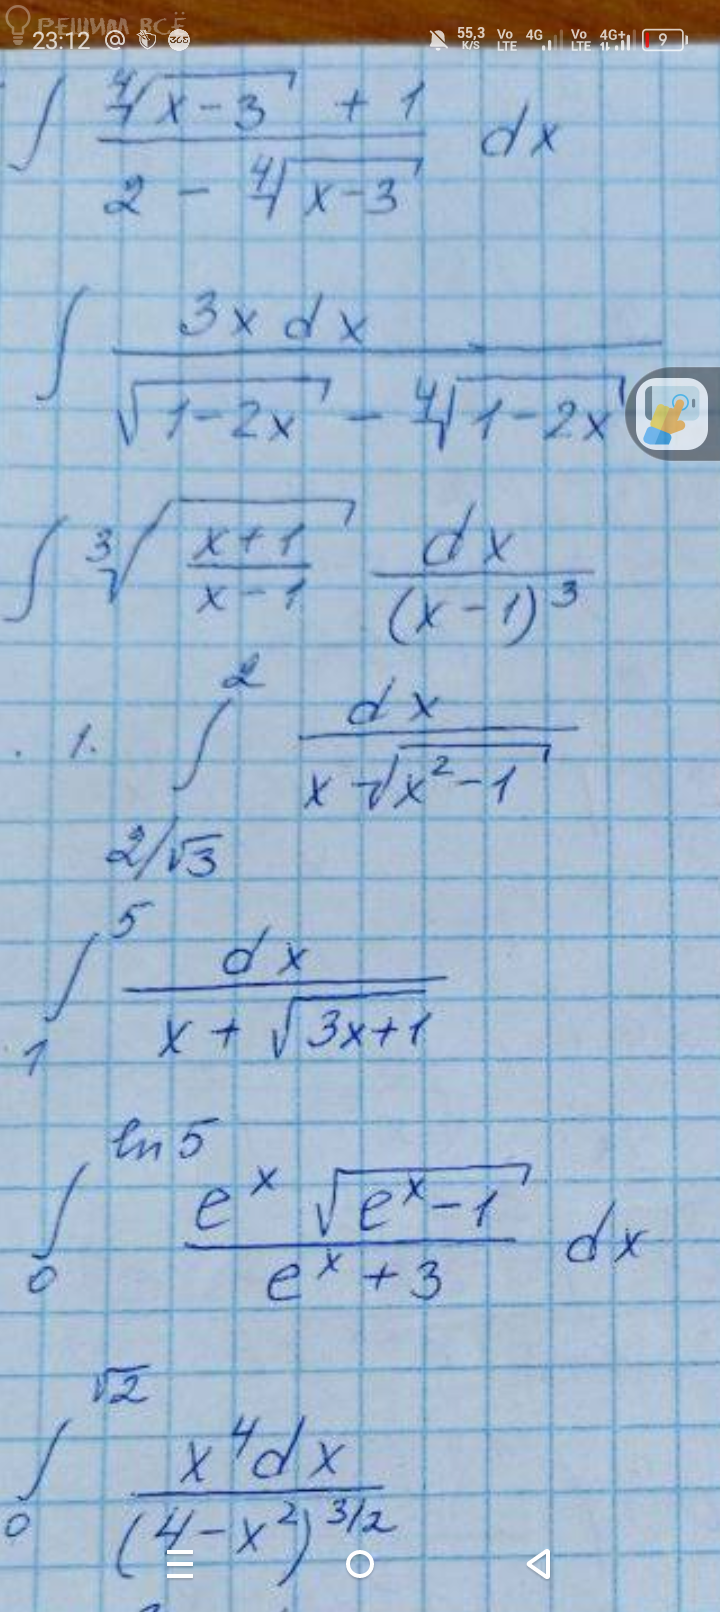 РЕШИМ ВСЁ
23:12 @ 55,3 K/S Vo LTE 4G Vo LTE 4G+ 9
∫ (∜(x-3) + 1)/(2 - ∜(x-3)) dx
∫ 3x dx/(√(1-2x) - ∜(1-2x))
∫ ∛((x+1)/(x-1)) dx/(x-1)³
1. ∫_{2/√3}^{2} dx/(x√(x²-1))
∫_{1}^{5} dx/(x + √(3x+1))
∫_{0}^{ln 5} (eˣ √(eˣ-1))/(eˣ+3) dx
∫_{0}^{√2} x⁴dx/(4-x²)^{3/2}